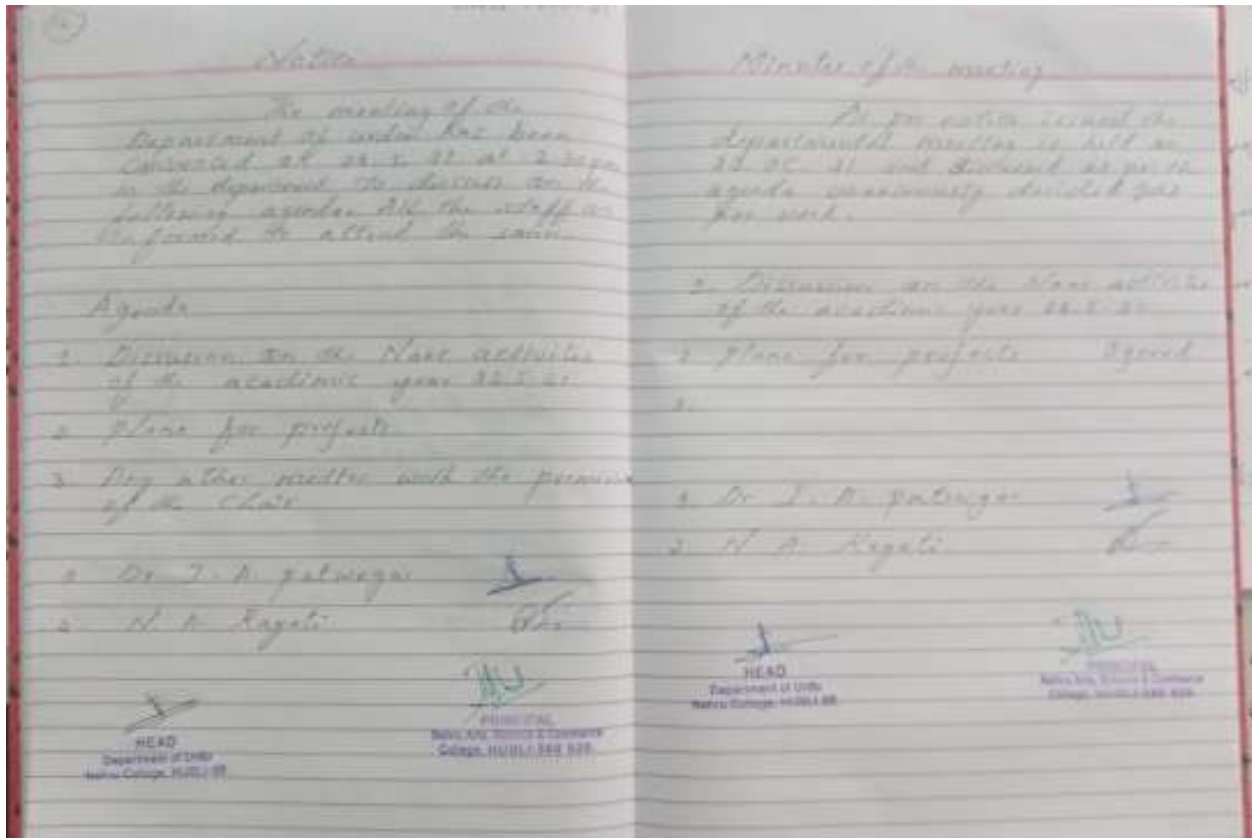 Notice
The meeting of the
Department of urdu has been
convened at 22.5.21 at 2.30 pm
in the department to discuss on the
following agenda. All the staff are
informed to attend the same.
Agenda
1. Discussion on the Naac activities
of the academic year 22.5.21
2. Plans for projects
3. Any other matter with the
of the Chair
1. Dr I. A. patwegar
2. N. A. Kagati
HEAD
Department of Urdu
Nehru College, HUBLI
PRINCIPAL
Nehru Arts, Science & Commerce
College, HUBLI-580 020.
Minutes of the meeting
As per notice issued the
departmental meeting is held on
22.05.21 and discussed as per the
agenda unanimously decided
for work.
Discussion on the Naac activities
of the academic year 22.5.21
2. Plans for projects agreed
1. Dr I. A. patwegar
2. N. A. Kagati
HEAD
Department of Urdu
Nehru College, HUBLI
PRINCIPAL
Nehru Arts, Science & Commerce
College, HUBLI-580 020.